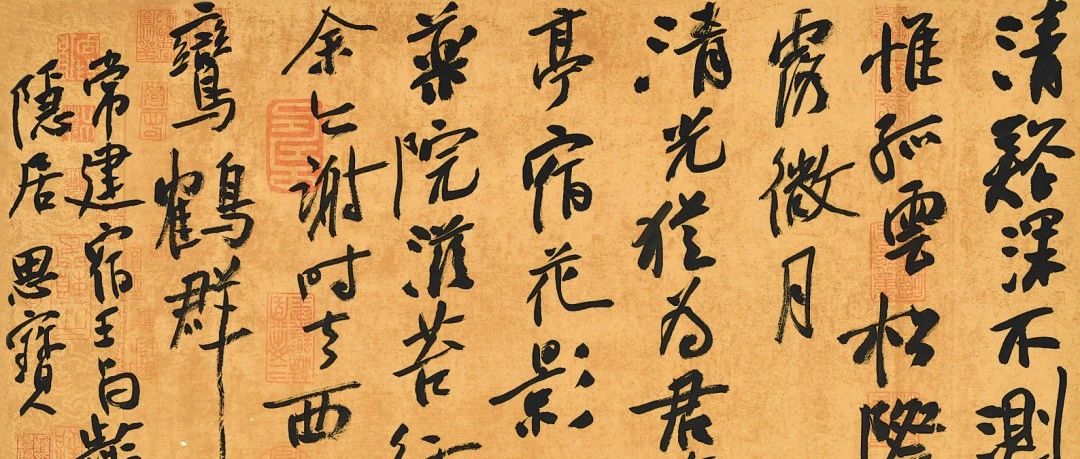 清谿深不測
惟孤雲松際
露微月
清光猶為君
亭宿花影
藥院滋苔
余亦謝時去西
鸞鶴群
常建宿王昌齡
隱居 思寶